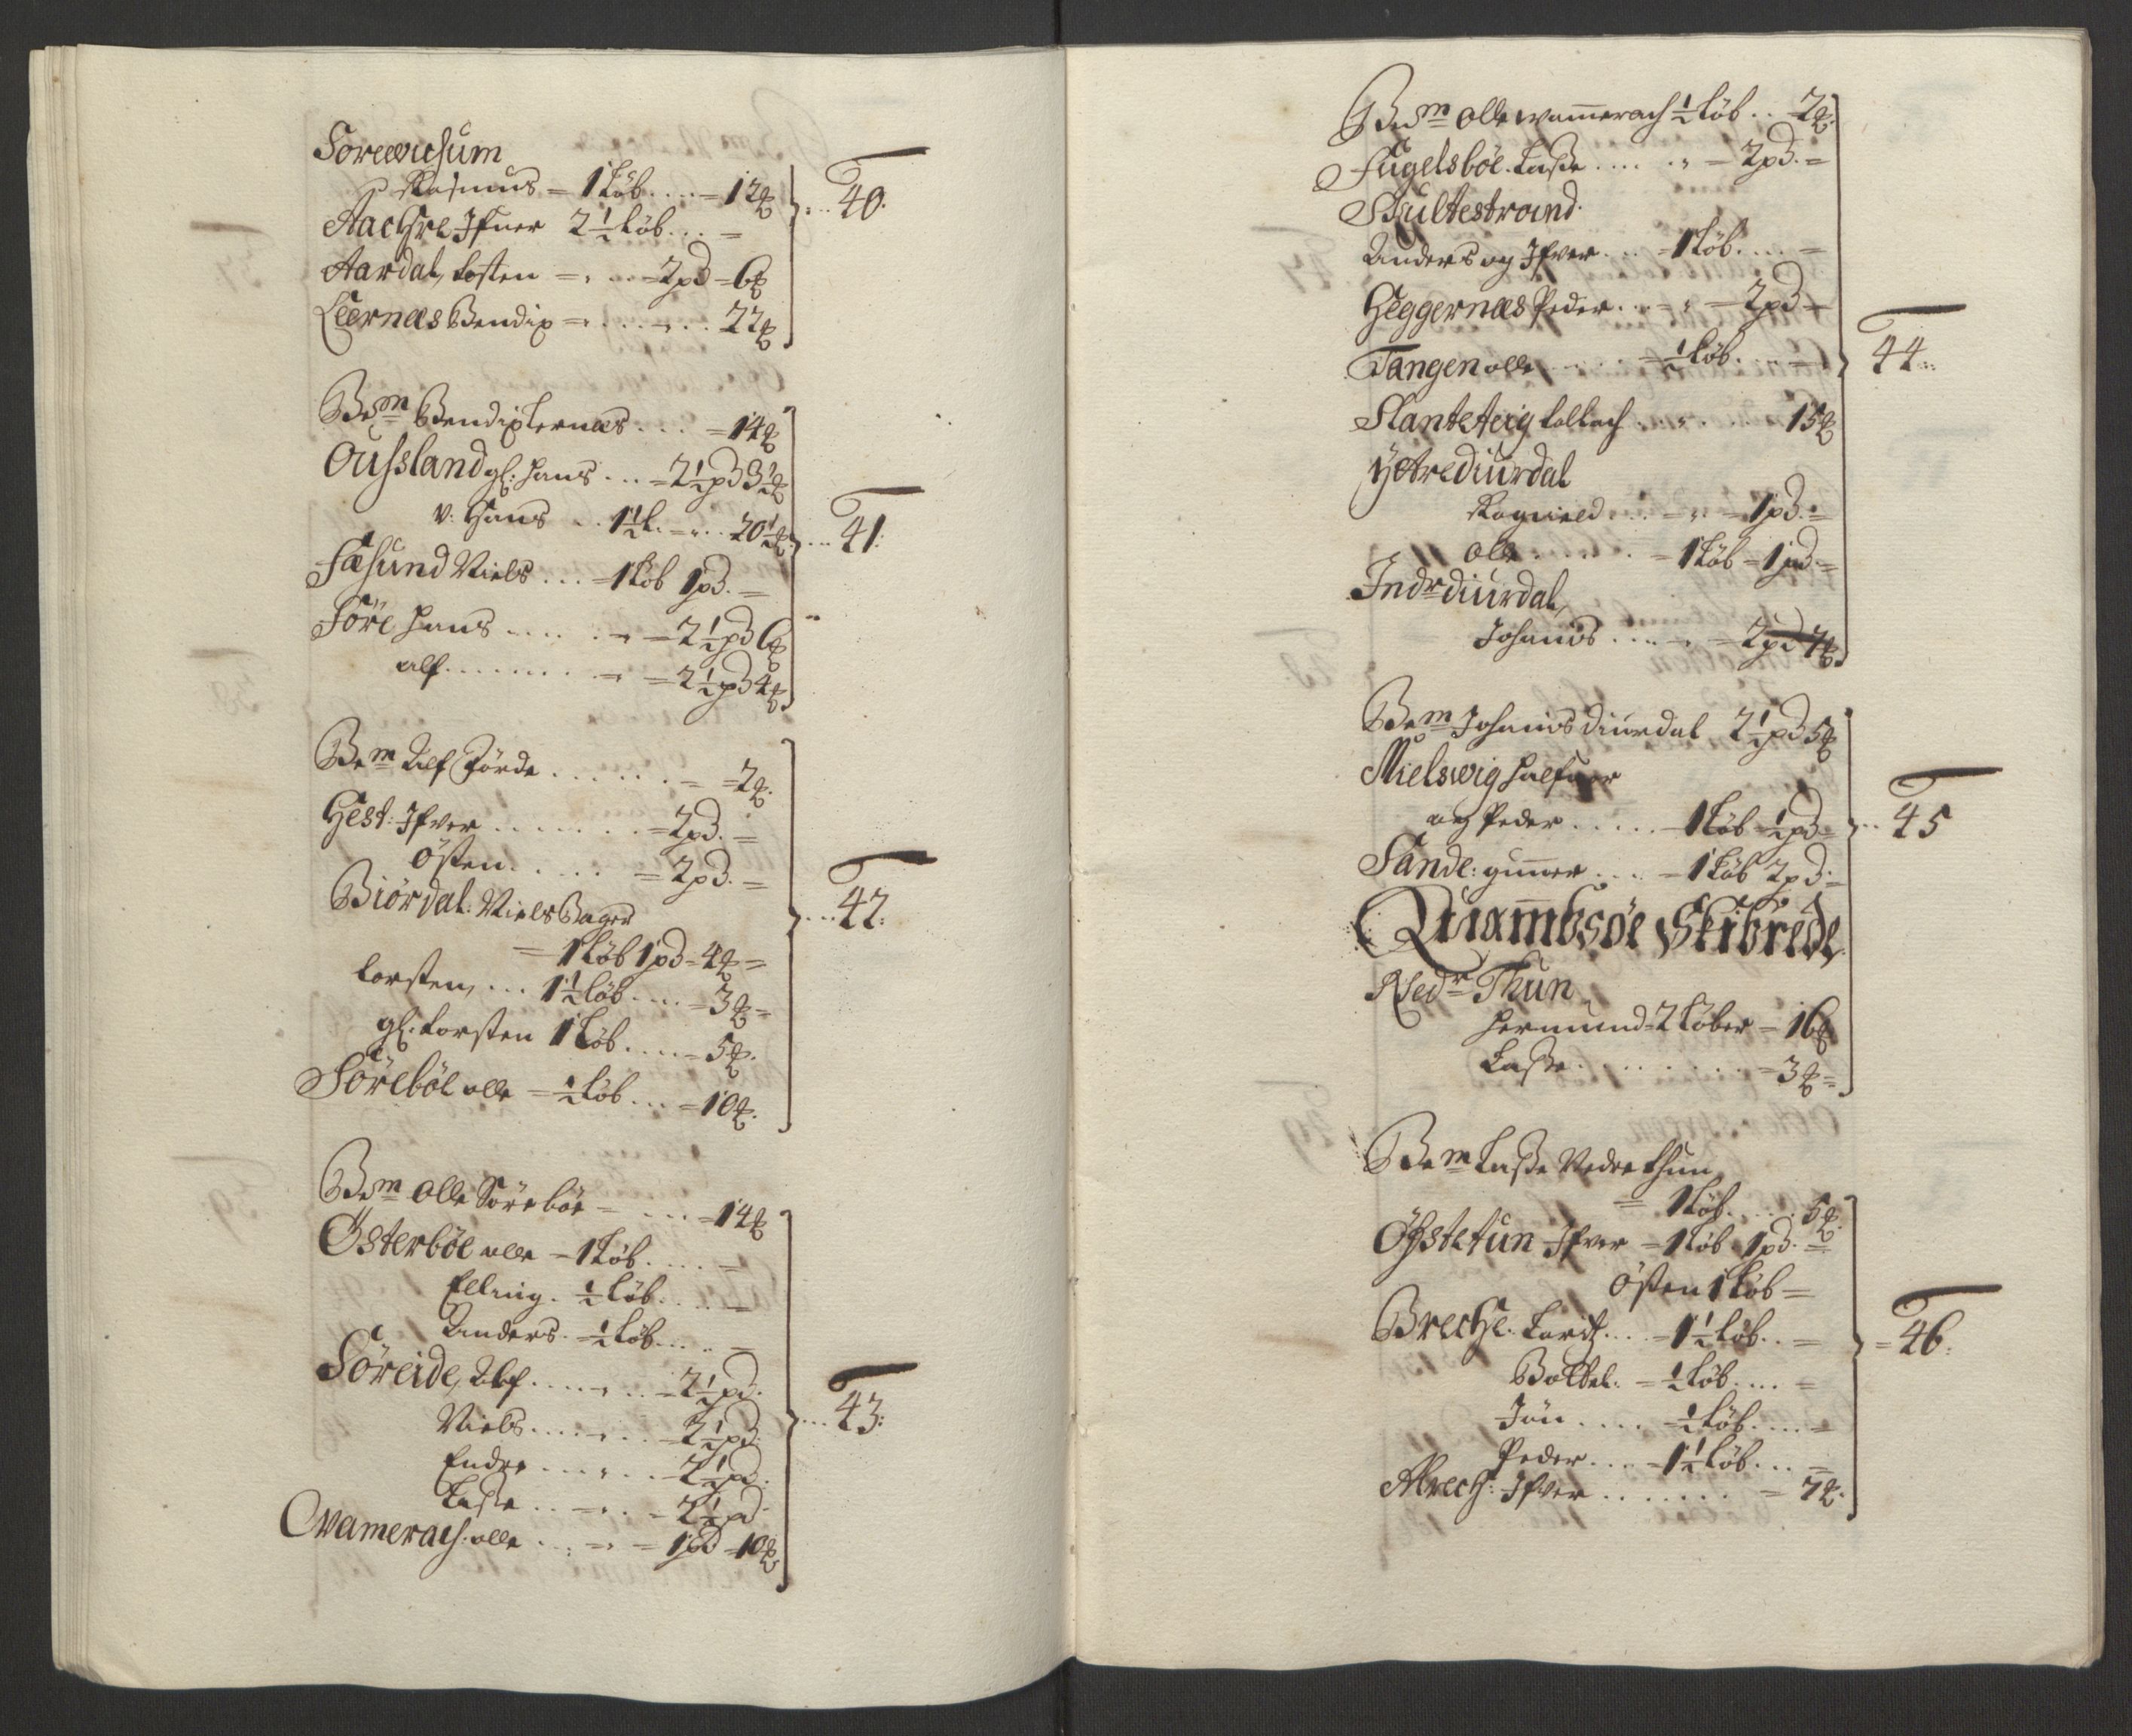 Sørewichum
Rasmus = 1 Löb .... = 12 ℔
Aachre Ifuer 2½ Löb ... =
40.
Aardal, Tosten = .. = 2 pd = 6 ℔
Leernæs Bendix = ...... 22 ℔
Bem Bendix Lernæs ... = 14 ℔
Oufsland gl: Hans ... = 2½ pd 3½ ℔
v: Hans .. 1½ L. = .. 20½ ℔
41:
Fæsund Niels ... = 1 Löb 1 pd. =
Före Hans ..... = = 2½ pd 6 ℔
alf ........ = = 2½ pd 4 ℔
Bem Alf Förde ...... = = 2 ℔.
Hest: Ifver ....... = 2 pd. =
Östen ..... = 2 pd. =
42:
Biördal: Niels Bager
= 1 Löb 1 pd = 4 ℔ =
Torsten, ... 1½ Löb .... = 3 ℔ =
gl. Torsten 1 Löb .... = 5 ℔.
Söreböe olle = ½ Löb ... = 10 ℔.
Bem Olle Söreböe = ... = 14 ℔
Österböe olle = 1 Löb .... =
Elling. ½ Löb .... =
Anders. = ½ Löb .... =
Söreide, Alf ...... = 2½ pd.
43:
Niels ...... = 2½ pd.
Endre ...... = 2½ pd.
Lasse .. = .. = 2½ pd.
Wamerach. olle ... = = 1 pd = 10 ℔
Bem Olle Wam̄erach ½ Löb .. = 2 ℔.
Fugelsböe. Lasse .... " = 2 pd. =
Skultestrand.
Anders og Ifver ... = 1 Löb .... =
Heggernæs Peder ... = " = 2 pd =
44:
Tangen olle ..... = ½ Löb. ... =
Slanteteig Tollach .... 15 ℔
Yttrediurdal
Rognield ... = .. = 1 pd. =
Olle ...... = 1 Löb = 1 pd =
Indr diurdal,
Johanis .... = = 2 pd 7 ℔
Bem Johanis diurdal 2½ pd 5 ℔
Mielswig Halfuor
og Peder ..... = 1 Löb ½ pd =
45
Sande: gun̄er ... = 1 Löb 2 pd =
Quam̄bsøe Skibrede
Nedr Thun
Hermund = 2 Löber = 16 ℔
Lasse .......... = 3 ℔ =
Bem Lasse Nedrethun
= 1 Löb .... 5 ℔.
Öfstetun Ifver = 1 Löb 1 pd. =
Östen 1 Löb =
Breche. Laritz ... = 1½ Löb .. =
46.
Botbel. = ½ Löb .... =
Jon .... = ½ Löb .... =
Peder ... = 1½ Löb ... =
Abrech: Ifver ....... = 7 ℔.